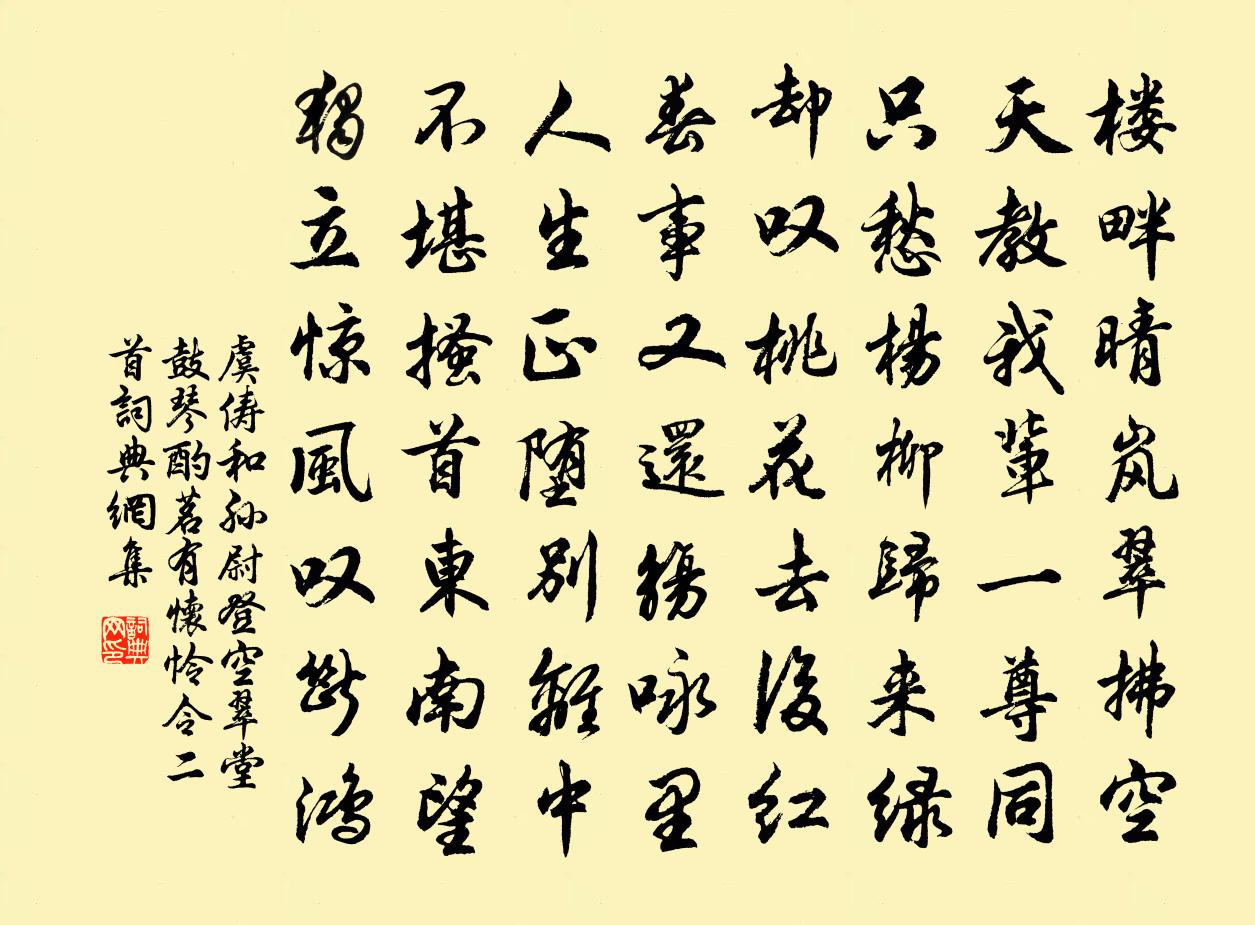 楼畔晴岚翠拂空
天教我辈一尊同
只愁杨柳歸来绿
却叹桃花去後红
春事又還觞咏里
人生正堕别離中
不堪搔首東南望
獨立惊風叹断鸿
虞俦和孙尉登空翠堂
鼓琴酌茗有懷怜令二
首詞典網集
詞典网印